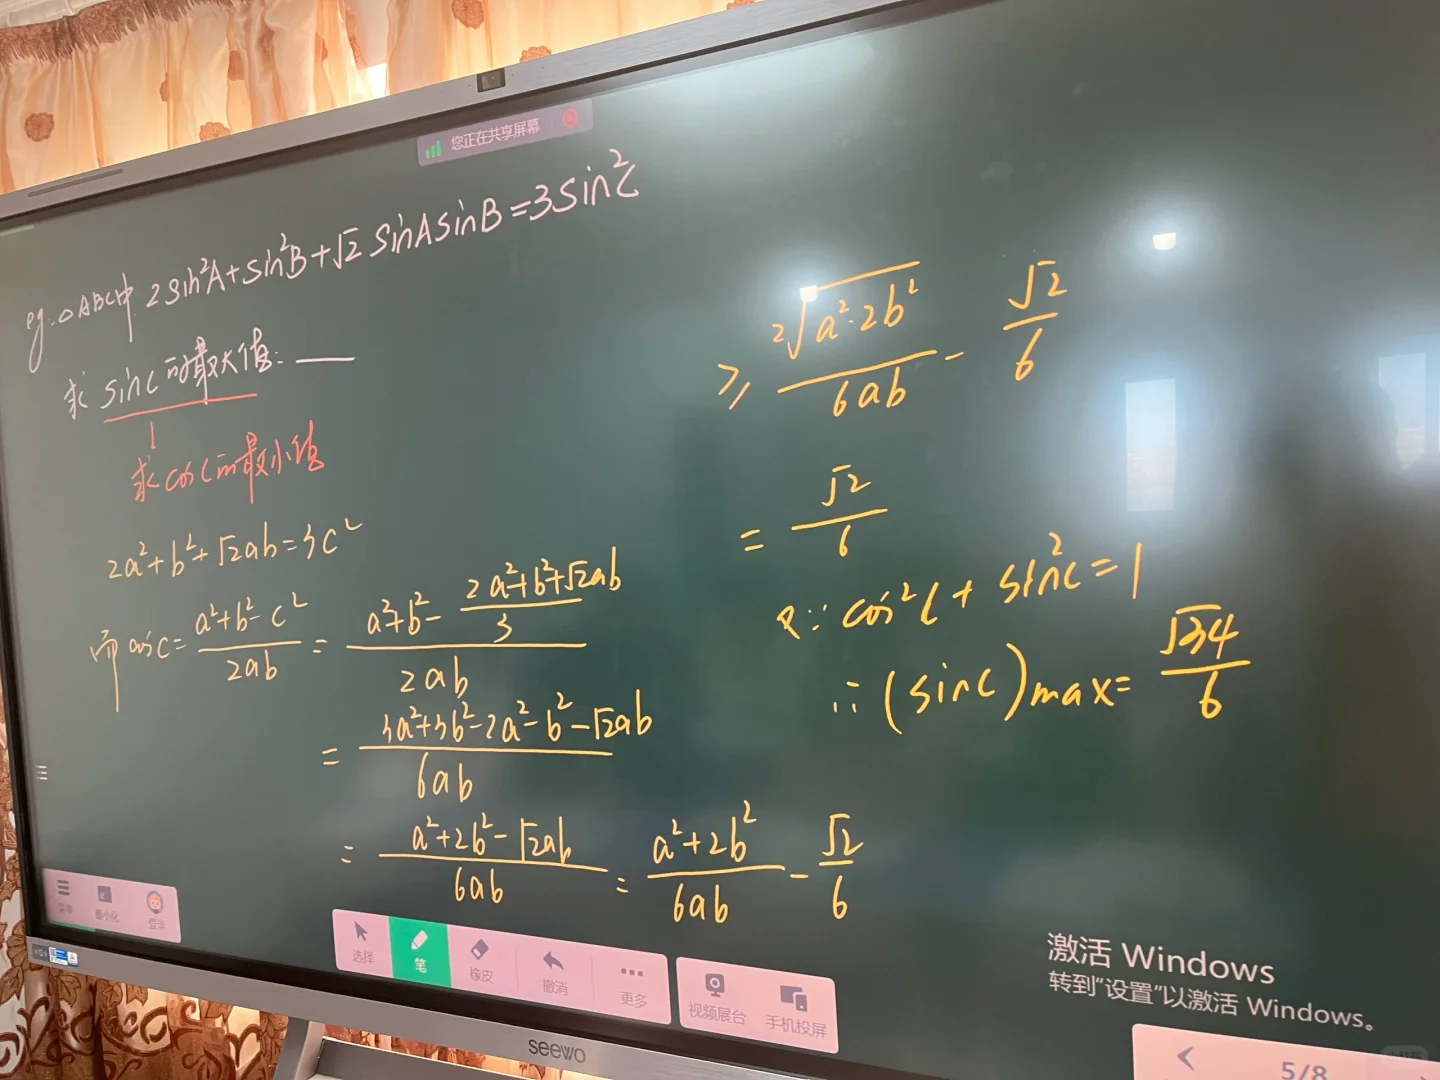 您正在共享屏幕
eg. △ABC中 2sin²A+sin²B+√2 sinAsinB=3sin²C
求 sinC的最大值: ___
求cosC的最小值
2a²+b²+√2ab=3c²
而 cosC= (a²+b²-c²)/(2ab) = (a²+b²-(2a²+b²+√2ab)/3)/(2ab)
= (3a²+3b²-2a²-b²-√2ab)/(6ab)
= (a²+2b²-√2ab)/(6ab) = (a²+2b²)/(6ab) - √2/6
≥ (2√(a²·2b²))/(6ab) - √2/6
= √2/6
又∵ cos²C+sin²C=1
∴ (sinC)max= √34/6
菜单 最小化 登录
选择 笔 橡皮 撤消 更多 视频展台 手机投屏
激活 Windows
转到"设置"以激活 Windows。
5/8
seewo